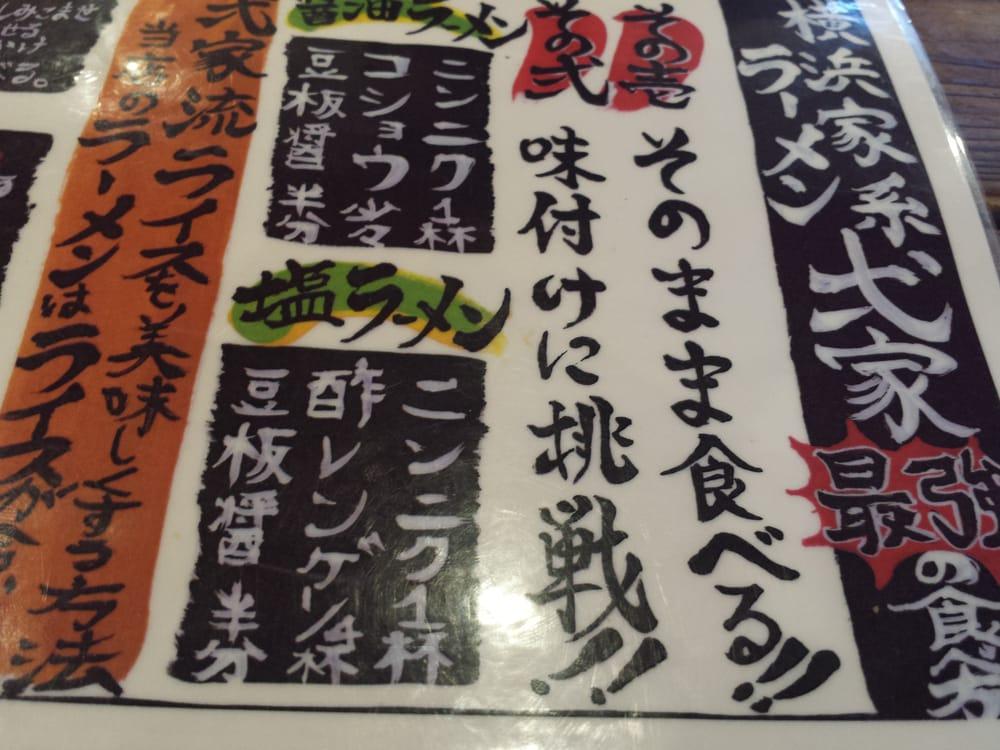 横浜家系
ラーメン
弐家
最強
の食べ方
その壱
そのまま食べる!!
その弐
味付けに挑戦!?!!
醤油ラーメン
ニンニク1杯
コショウ少々
豆板醤半分
塩ラーメン
ニンニク1杯
酢レンゲ1/4杯
豆板醤半分
弐家流ライスを美味しくする方法
当店のラーメンはライスが